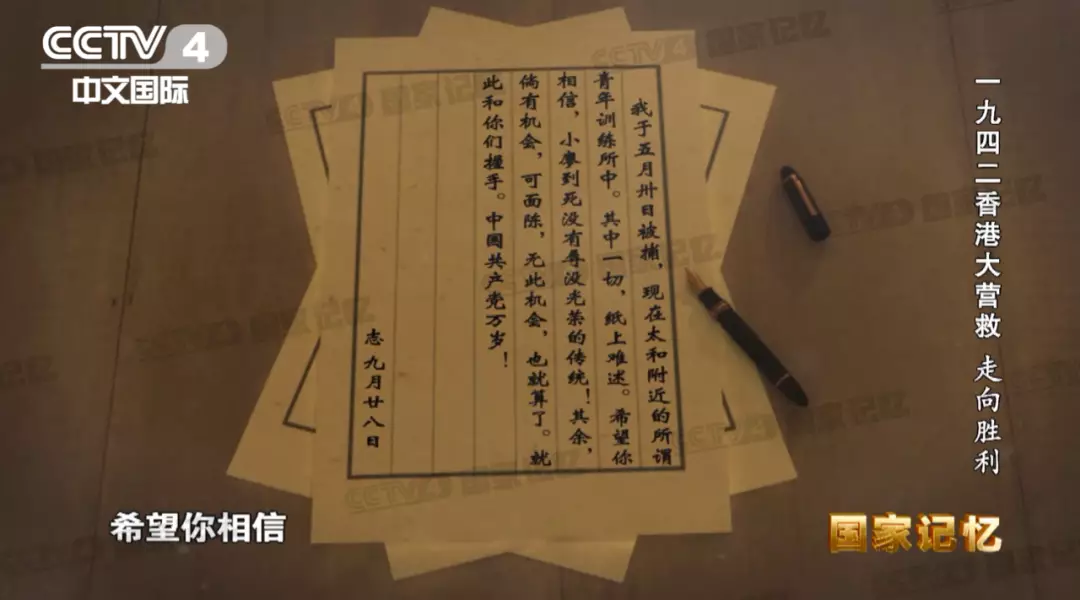 CCTV 4
中文国际
一九四二香港大营救 走向胜利
我于五月卅日被捕，现在太和附近的所谓
青年训练所中。其中一切，纸上难述。希望你
相信，小廖到死没有辱没光荣的传统！其余，
倘有机会，可面陈，无此机会，也就算了。就
此和你们握手。中国共产党万岁！
志 九月廿八日
希望你相信
国家记忆